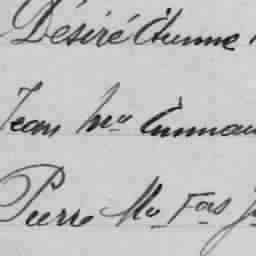 Désiré Etienne
Jean Mie Emman
Pierre Mie Fois J